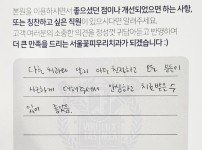 본원을 이용하시면서 좋으셨던 점이나 개선되었으면 하는 사항,
또는 칭찬하고 싶은 직원이 있으시다면 알려주세요.
고객 여러분의 소중한 의견을 정성껏 귀담아듣고 반영하여
더 큰 만족을 드리는 서울꽃피우리치과가 되겠습니다 :)
다른 치과보다 보다 더 친절하고 모든 분들이
대해주셔서 안심하고 치료받을 수
있어 좋았음.